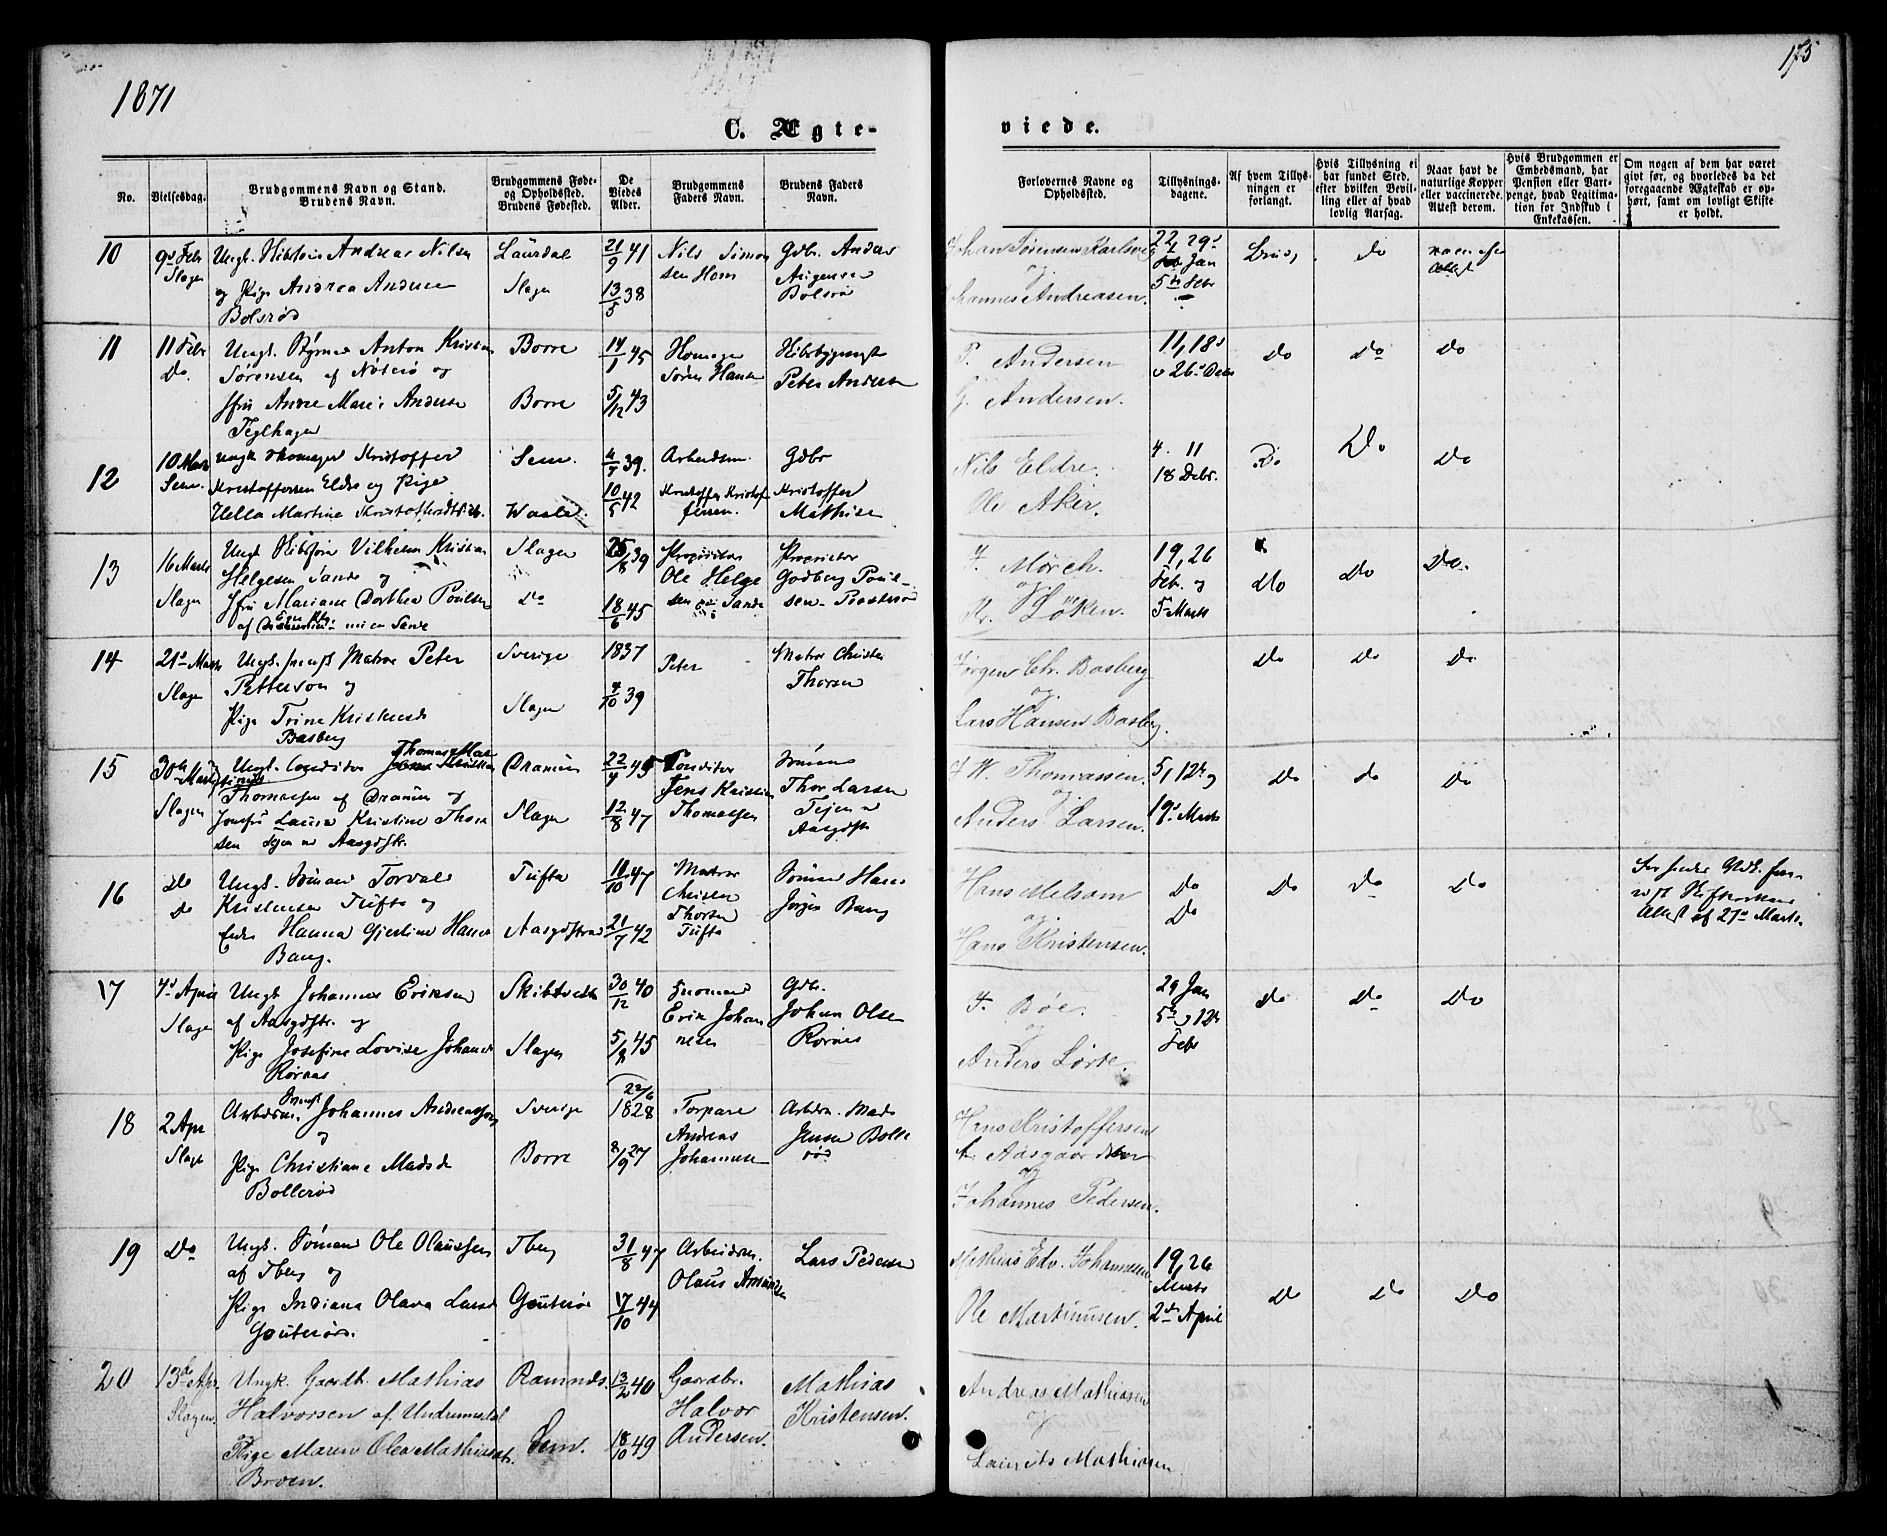 1871
175
C. Ægte-
viede.
No.
Vielsesdag.
Brudgommens Navn og Stand.
Brudens Navn.
Brudgommens Føde-
og Opholdssted.
Brudens Fødested.
De
Viedes
Alder.
Brudgommens
Faders Navn.
Brudens Faders
Navn.
Forlovernes Navne og
Opholdssted.
Tillysnings-
dagene.
Af hvem Tillys-
ningen er
forlangt.
Hvis Tillysning ei
har fundet Sted,
efter hvilken Bevil-
ling eller af hvad
lovlig Aarsag.
Naar havt de
naturlige Kopper
eller vaccinerede.
Attest derom.
Hvis Brudgommen er
Embedsmand, har
Pension eller Vart-
penge, hvad Legitima-
tion for Indskud i
Enkekassen.
Om nogen af dem har været
gift før, og hvorledes da det
foregaaende Ægteskab er op-
hørt, samt om lovligt Skifte
er holdt.
10
9d Febr
Slagen
Andreas Nilsen
og Pige Andrea Anderse
Bolsrød
Laurdal
Slagen
21/9 41
13/5 38
Nils Simon
sen
Gdbr. Anders
Bolsrø
Johan Sørensen
og
Johannes Andreasen.
22, 29d
Jan
5te Febr
Brud,
do
11
11 Febr
Do.
Ungk. Styrmd Anton Kristian
Sørensen af Nøterø og
Jfru Andre Marie Anderse
Teglhagen
Borre
Borre
14/1 45
5/12 43
Søren Hanse
Peter Anderse
P. Andersen
G. Andersen.
11, 18d
26d Debr
Do
Do
Do
12
10 Marts
Sem.
Ungk. Kristoffer
Kristoffersen Eldre og Pige
Hella Martine
Sem.
Waale
4/7 39.
10/5 42
Arbeidsm.
Kristoffer Kristof
fersen.
Gdbr
Kristoffer
Mathise
Nils Eldre.
Ole Aker.
4. 11
18 Debr.
Do
Do
Do
13
16 Marts
Slagen
Ungk. Vilhelm Kristian
Helgesen Sande og
Jfru Mariane Dorthea Poulsen
af
Slagen
do
25/8 39
18/6 45
Proprietær
Ole Helge
sen Sande
Proprietær
Godberg Poul-
sen
F. Mørch.
og
Kr. Løken.
19, 26
Febr. og
5 Marts
do
do
Do.
14
21d Marts
Slagen
Ungk. Matros Peter
Petterson og
Pige Trine Kristensdr
Basberg
Sverige
Slagen
1837
4/10 39
Peter
Matros Christen
Thorsen
Jørgen Chr. Basberg
og
Lars Hansen Basberg.
Do
Do
Do
15
30te Marts
Slagen
Ungk. Conditor Thomas
Thomassen af Dramen og
Jomfru Laura Kristine Thor
sen Tejen v Aasgdstr.
Dramen
Slagen
22/4 45
12/8 47
Conditor
Jens Kristian
Thomassen
Sømand
Thor Larsen
Tejen v
Aasgdstr
F W. Thomassen.
og
Anders Larsen.
5, 12te og
19d Marts
Do
do
Do
16
do
Do
Ungk. Sømand Torvald
Kristensen Tufte og
Enke Hanna Gjertine Hanse
Bang.
Tufte
Aasgdstrand
11/10 47
21/7 42
Matros
Christen
Thorsen
Tufte
Sømand Hans
Jørgen Bang
Hans Melsom
og
Hans Kristensen.
Do
Do
Do
Do
Do
Attest af 27d Marts.
17
4d April
Slagen
Ungk. Johannes Eriksen
af Aasgdstr. og
Pige Josefine Lovise Johansdr
Rørnes
Skibtvedt
Slagen
30/12 40
5/8 45
Erik Johan
nesen
Gdbr.
Johan Olse
Rørnes
F. Bøe.
og
Anders Lørte.
29 Jan
5te og 12te
Febr
Do
Do
Do
18
2 Apr
Slagen
Arbeidsm. Johannes Andreassen
og
Pige Christiane Madsdr
Bollerød
Sverige
Borre
22/6
1828
2/9 27
Torpare
Andreas
Johannesen
Arbdm. Mads
Jensen Bolle
rød
Hans Kristoffersen
og
Johannes Pedersen.
19
Do
Ungk. Sømand Ole Olaussen
af Tberg og
Pige Indiana Olava Larsd
Gouterød.
Tberg
Gouterød
31/8 47
17/10 44
Arbeidsm.
Olaus Amundsen
Lars Pederse
Mathias Edv. Johannesen
Ole Martinusen.
19, 26
Marts
2den April
Do
Do
Do
20
13de Apr.
Slagen.
Ungk. Gaardb. Mathias
Halvorsen af Undrumsdal
Pige Maren Olea Mathiasdtr.
Broen.
Ramnæs.
Sem.
13/2 40
18/10 49
Gaardbr.
Halvor
Andersen.
Mathias
Kristensen.
Andreas Mathiasen
og
Laurits Mathiasen